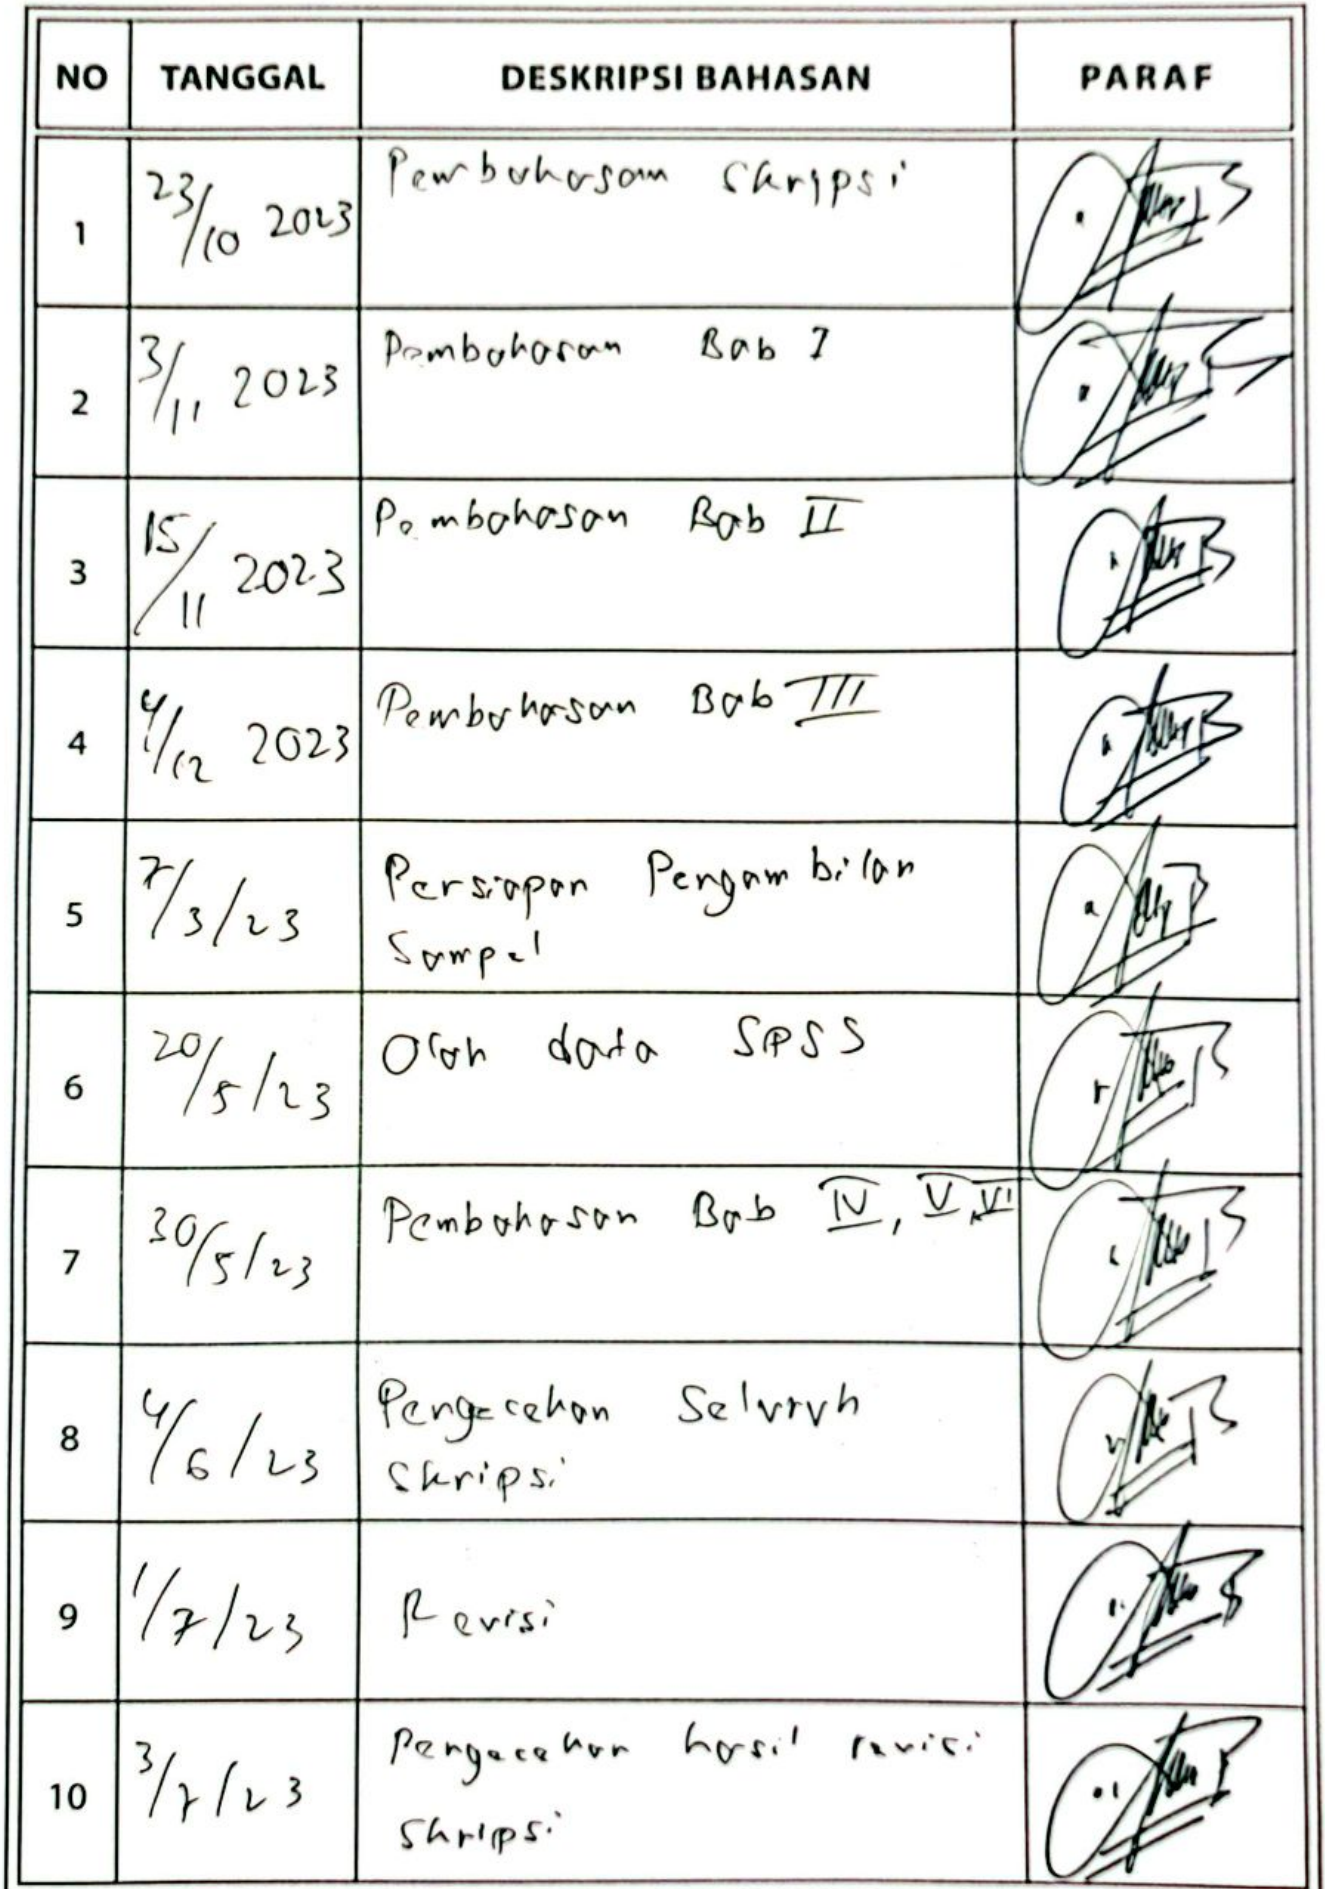 NO TANGGAL DESKRIPSI BAHASAN PARAF
1 23/10 2023 Pembahasan Skripsi
2 3/11 2023 Pembahasan Bab I
3 15/11 2023 Pembahasan Bab II
4 4/12 2023 Pembahasan Bab III
5 7/3/23 Persiapan Pengambilan
Sampel
6 20/5/23 Olah data SPSS
7 30/5/23 Pembahasan Bab IV, V, VI
8 4/6/23 Pengecekan Seluruh
Skripsi
9 1/7/23 Revisi
10 3/7/23 Pengecekan hasil revisi
Skripsi